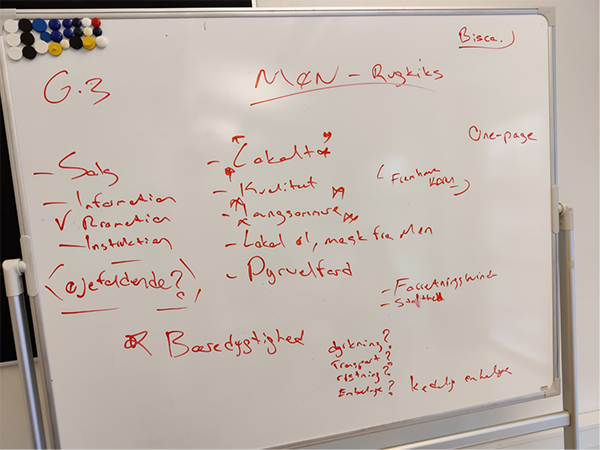 G.3
MØN - Rugkiks
One-page
- Salg
- Information
V Promotion
- Instruktion
(øjefaldende?)
- "Lokalt"
- Kvalitet
- Langsomme
- Lokal øl, mask fra Møn
- Dyrvelfærd
- Forretningskunder
Bæredygtighed
dyrkning?
Transport?
ristning?
Embalage? kedelig embalage